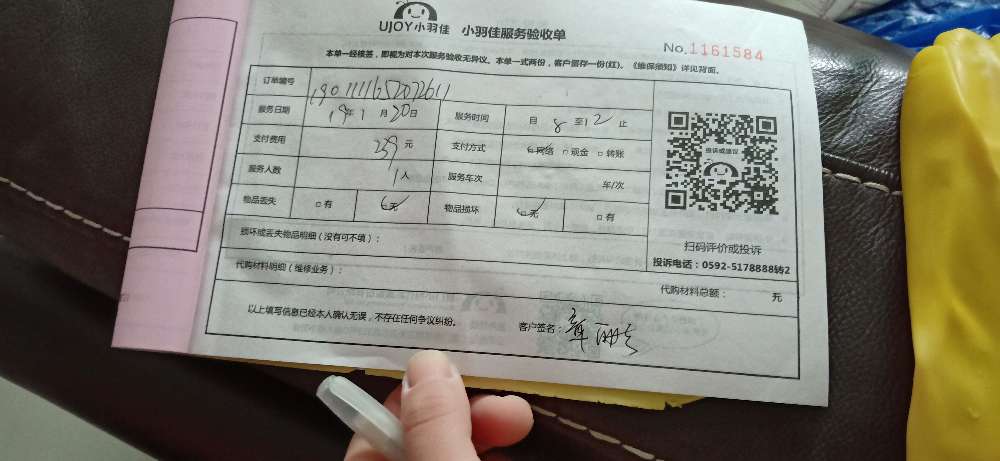 UJOY小羽佳 小羽佳服务验收单
No.1161584
本单一经核签，即视为对本次服务验收无异议。本单一式两份，客户留存一份(红)。《维保须知》详见背面。
订单编号
服务日期 19年1月20日 服务时间 自 8 至12 止
支付费用 239元 支付方式 网络 □现金 □转账
服务人数 1人 服务车次 车/次
物品丢失 □有 □无 物品损坏 □无 □有
损坏或丢失物品明细（没有可不填）：
代购材料明细（维修业务）：
投诉或建议
扫码评价或投诉
投诉电话：0592-5178888转2
代购材料总额： 元
以上填写信息已经本人确认无误，不存在任何争议纠纷。 客户签名：章